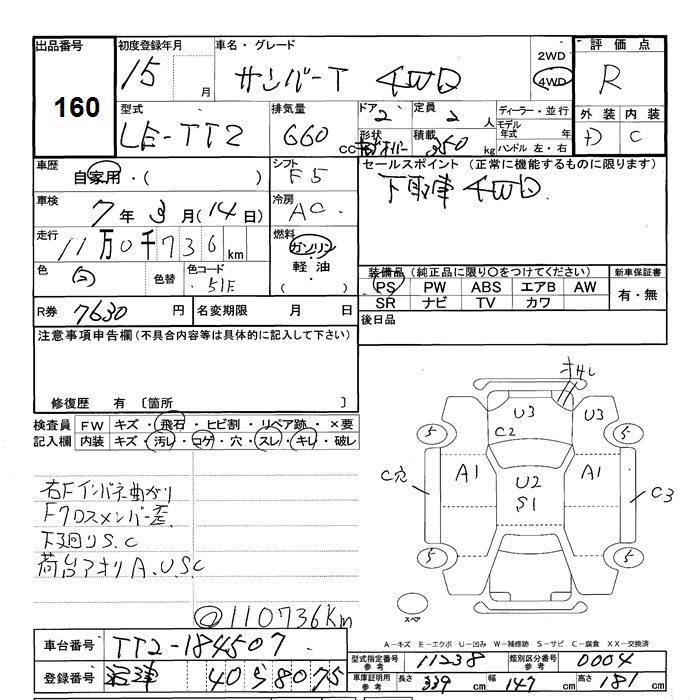 出品番号 初度登録年月 車名・グレード 2WD 評価点
160 15 月 サンバーT 4WD 4WD R
型式 排気量 ドア 定員 ディーラー・並行 外装 内装
LE-TT2 660 cc 2 2 人 モデル年式 年 D C
形状 積載 350 kg ハンドル 左・右
車歴 自家用・( ) シフト F5 セールスポイント (正常に機能するものに限ります)
下取車 4WD
車検 7年3月(14日) 冷房 AC
走行 11万0千736km 燃料 ガソリン・軽油・( )
色 白 色替 色コード 51E
装備品(純正品に限り○をつけてください) 新車保証書
PS PW ABS エアB AW 有・無
SR ナビ TV カワ
R券 7630 円 名変期限 月 日 後日品
注意事項申告欄(不具合内容等は具体的に記入して下さい)
修復歴 有 〔箇所 〕
検査員 FW キズ・飛石・ヒビ割・リペア跡・×要
記入欄 内装 キズ・汚レ・コゲ・穴・スレ・キレ・破レ
右Fインパネ曲がり
Fクロスメンバー歪
下廻りS.C
荷台アオリA.U.S.C
110736Km
U3 U3
C2
5 5
A1 A1
C穴 U2 C3
S1
5 5
スペア
A-キズ E-エクボ U-凹み W-補修跡 S-サビ C-腐食 XX-交換済
車台番号 TT2-184507
登録番号 40 8075
型式指定番号 参考 11238 類別区分番号 参考 0004
車庫証明用 参考 長さ 339 cm 幅 147 cm 高さ 181 cm